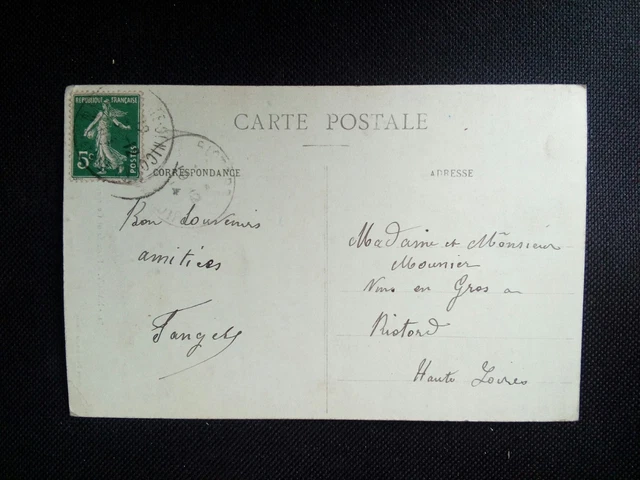 REPUBLIQUE FRANÇAISE
5c
POSTES
CARTE POSTALE
CORRESPONDANCE
ADRESSE
Bon souvenirs
amitiées
Madame et Monsieur
Mounier
Vins en Gros a
Riotord
Haute Loires